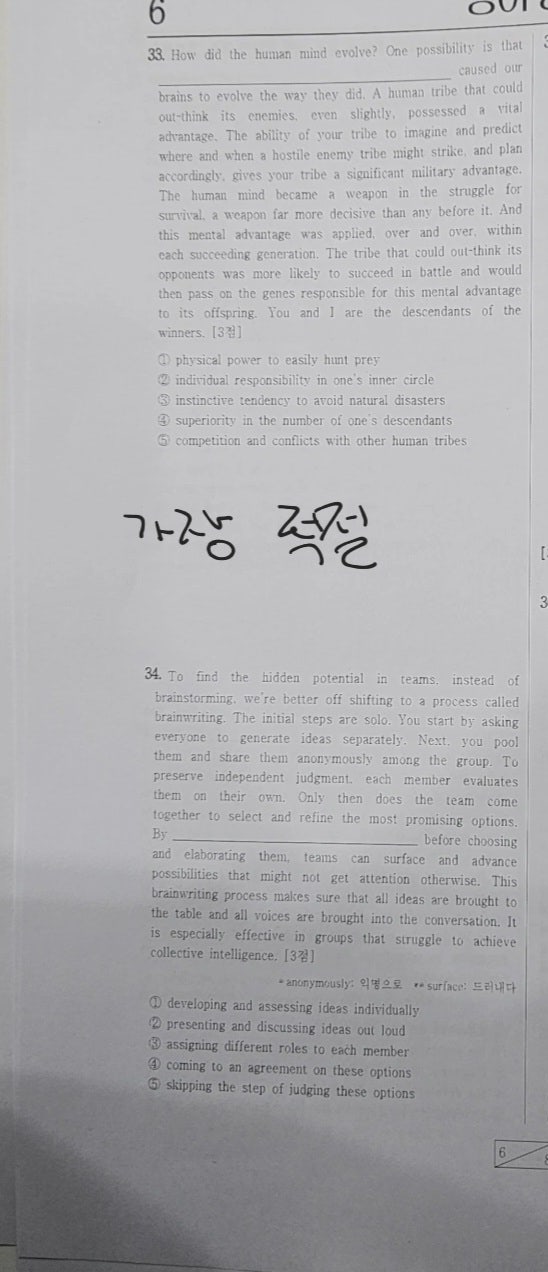 6
33. How did the human mind evolve? One possibility is that
____________________ caused our
brains to evolve the way they did. A human tribe that could
out-think its enemies, even slightly, possessed a vital
advantage. The ability of your tribe to imagine and predict
where and when a hostile enemy tribe might strike, and plan
accordingly, gives your tribe a significant military advantage.
The human mind became a weapon in the struggle for
survival, a weapon far more decisive than any before it. And
this mental advantage was applied, over and over, within
each succeeding generation. The tribe that could out-think its
opponents was more likely to succeed in battle and would
then pass on the genes responsible for this mental advantage
to its offspring. You and I are the descendants of the
winners. [3점]
① physical power to easily hunt prey
② individual responsibility in one's inner circle
③ instinctive tendency to avoid natural disasters
④ superiority in the number of one's descendants
⑤ competition and conflicts with other human tribes
가장 적절
34. To find the hidden potential in teams, instead of
brainstorming, we're better off shifting to a process called
brainwriting. The initial steps are solo. You start by asking
everyone to generate ideas separately. Next, you pool
them and share them anonymously among the group. To
preserve independent judgment, each member evaluates
them on their own. Only then does the team come
together to select and refine the most promising options.
By ____________________ before choosing
and elaborating them, teams can surface and advance
possibilities that might not get attention otherwise. This
brainwriting process makes sure that all ideas are brought to
the table and all voices are brought into the conversation. It
is especially effective in groups that struggle to achieve
collective intelligence. [3점]
*anonymously: 익명으로 **surface: 드러내다
① developing and assessing ideas individually
② presenting and discussing ideas out loud
③ assigning different roles to each member
④ coming to an agreement on these options
⑤ skipping the step of judging these options
6